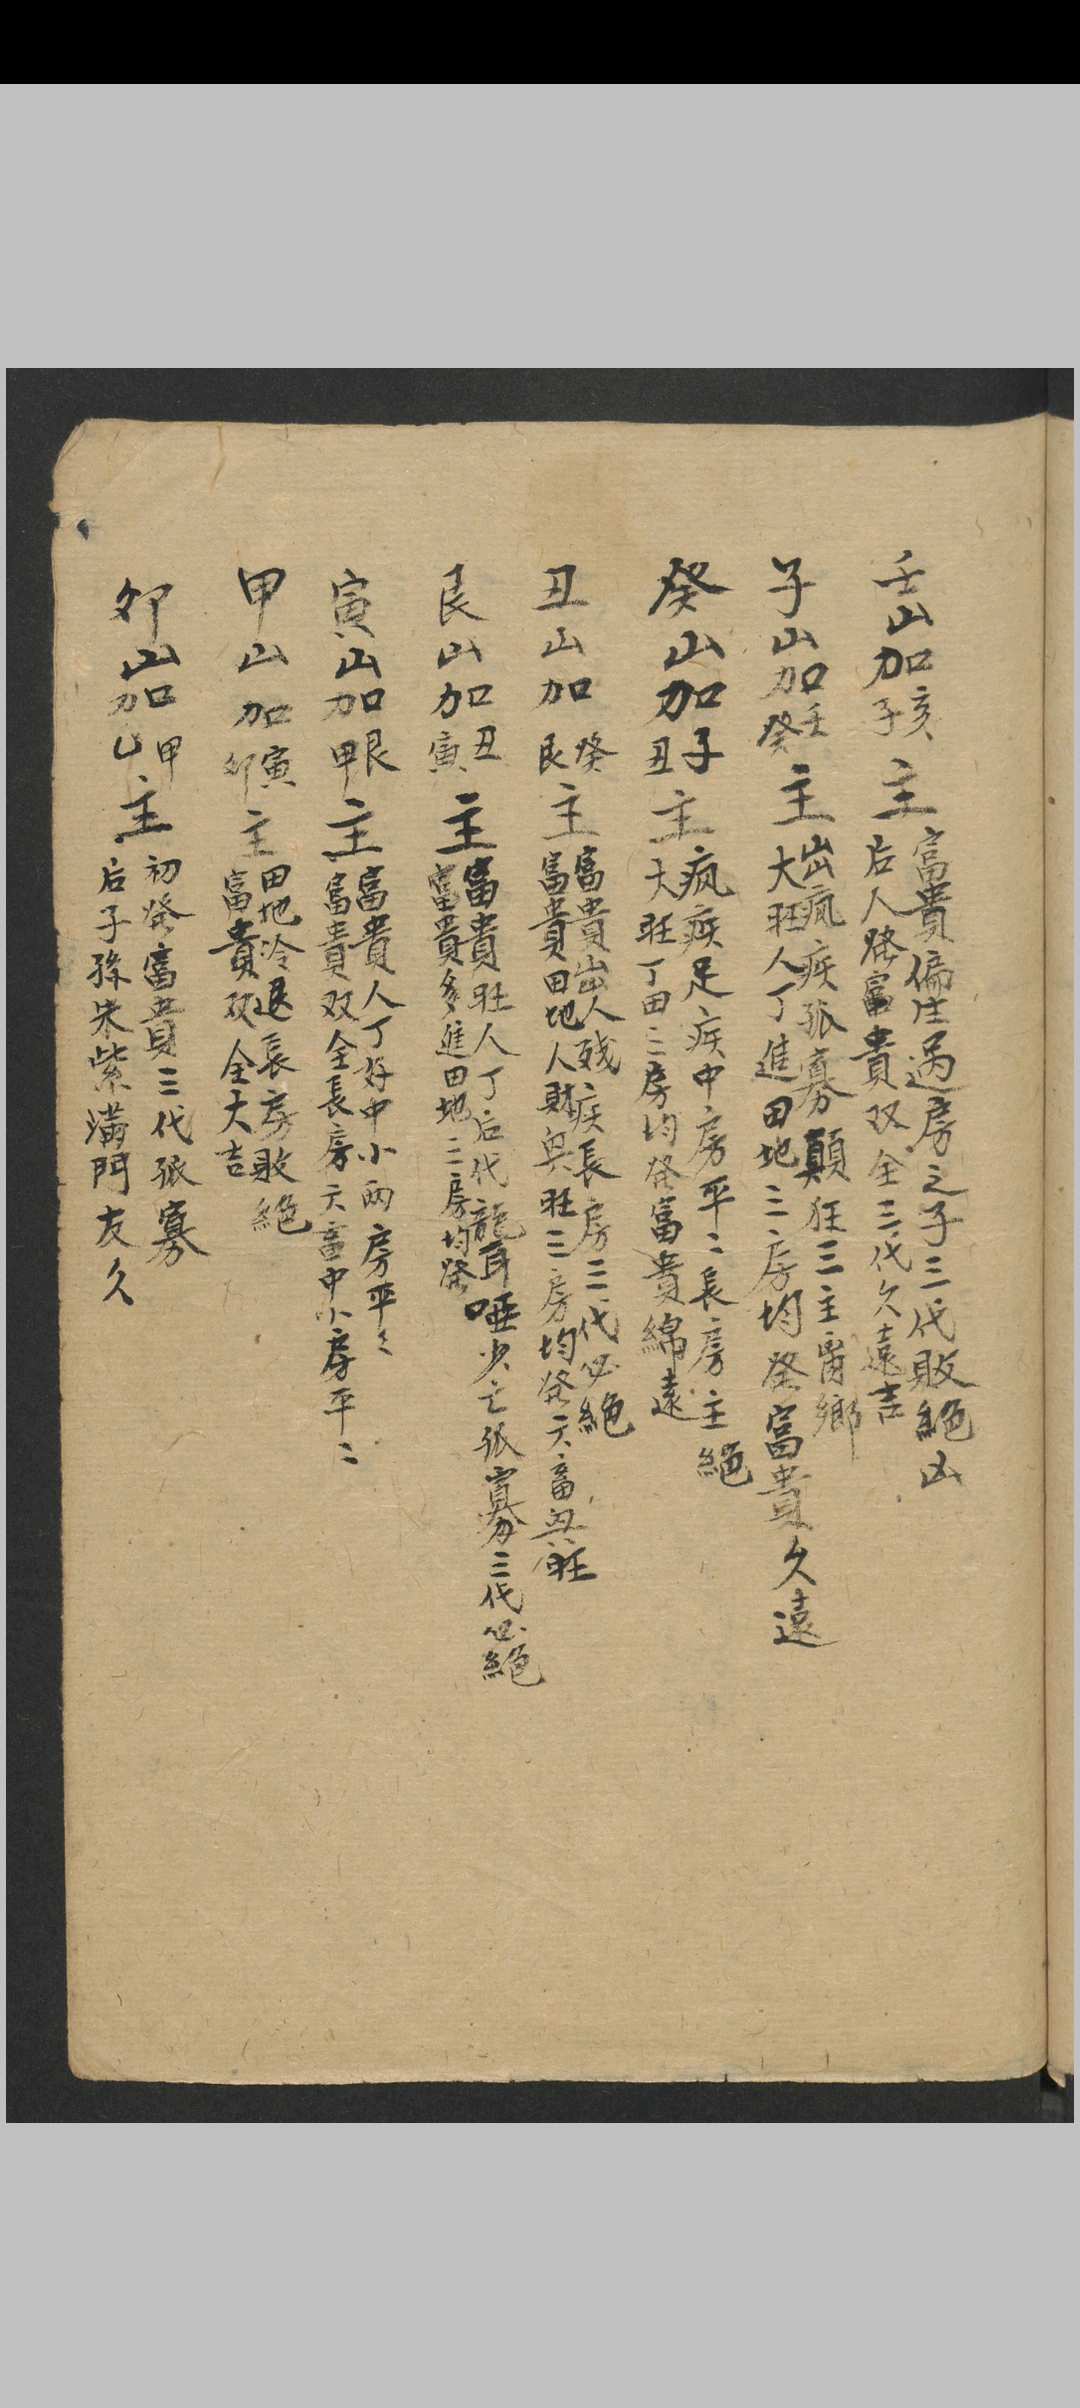 壬山加亥子主富貴偏生過房之子三代敗絕凶
后人發富貴双全三代久遠吉
子山加壬癸主出瘋疾孤寡顛狂三主离鄉
大旺人丁進田地三房均發富貴久遠
癸山加子丑主瘋疾足疾中房平二長房主絕
大旺丁田三房均發富貴綿遠
丑山加癸艮主富貴出人殘疾長房三代必絕
富貴田地人財興旺三房均發六畜興旺
艮山加丑寅主富貴旺人丁后代龍耳啞少亡孤寡三代必絕
富貴多進田地三房均發
寅山加艮甲主富貴人丁好中小两房平々
富貴双全長房六畜中小房平二
甲山加寅卯主田地冷退長房敗絕
富貴双全大吉
卯山加甲乙主初發富貴三代孤寡
后子孫朱紫滿門友久